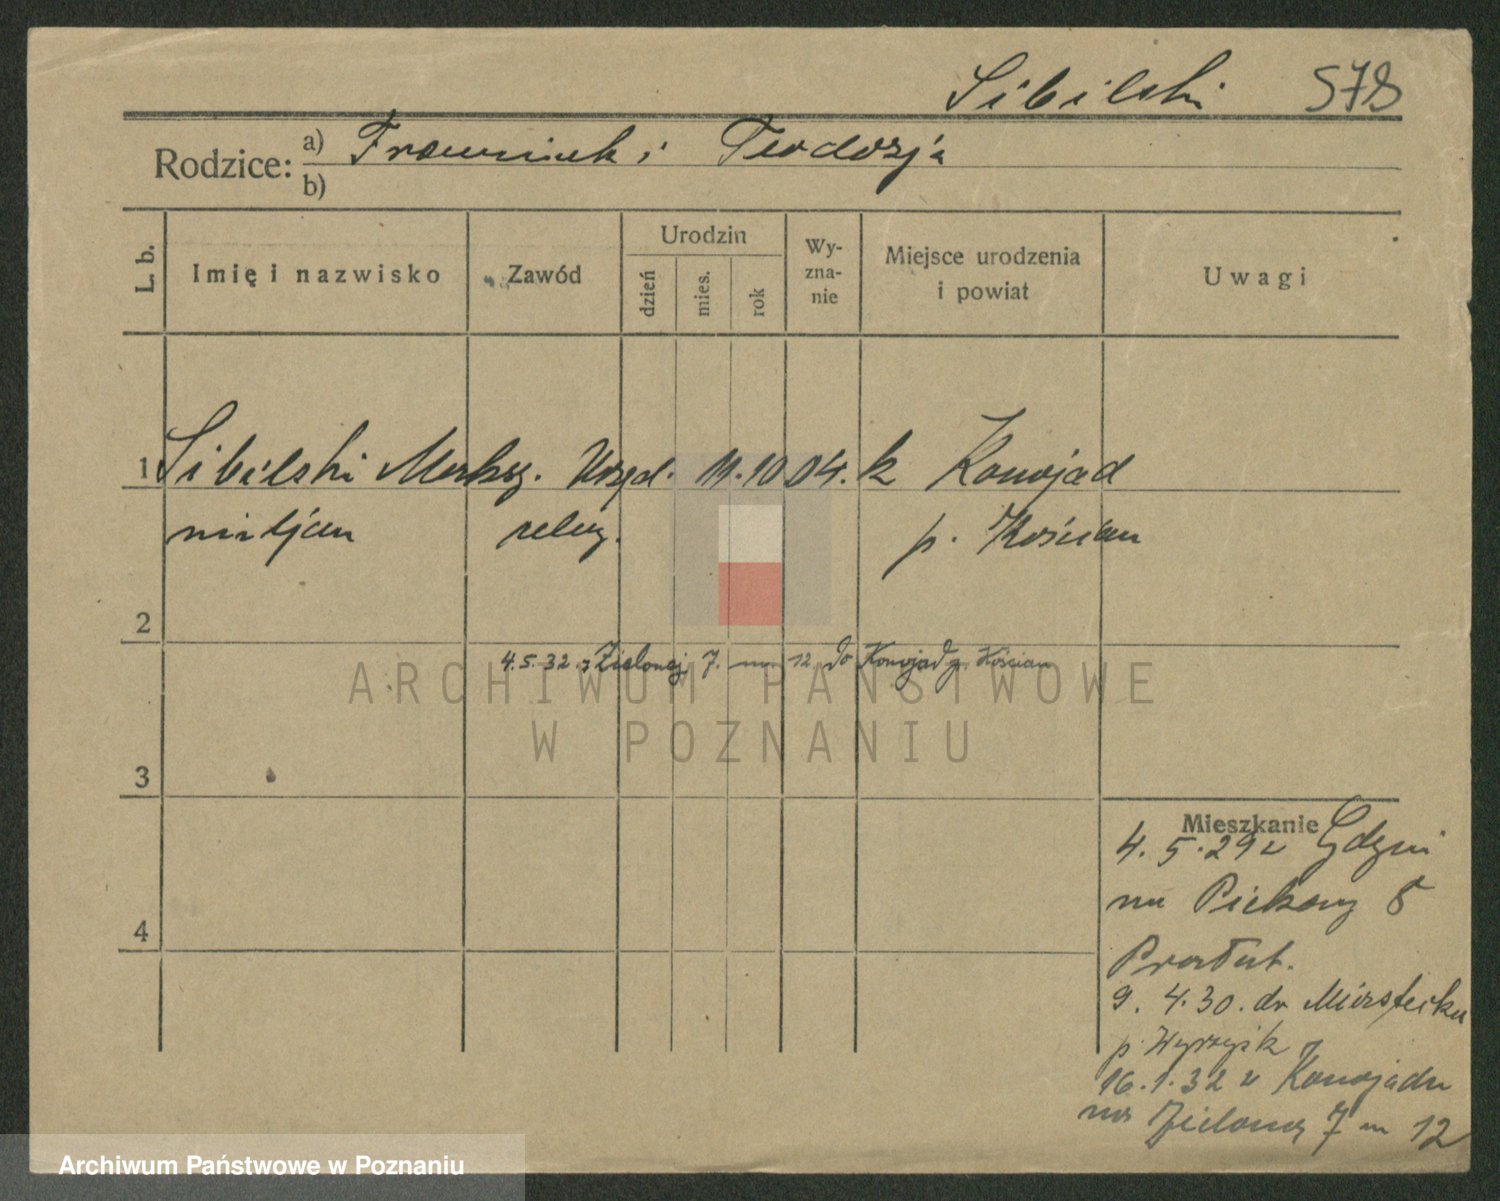 Sibilski 578
Rodzice: a) Franciszek i Teodozja
b)
L. b. Imię i nazwisko Zawód Urodzin dzień mies. rok Wy-zna-nie Miejsce urodzenia i powiat Uwagi
1 Sibilski Maksy. Urzęd. 11.10 04. k Konojad
miljan p. Kościan
2
4.5.32 z Zielonej 7. m. 12 do Konojad p. Kościan
ARCHIWUM PAŃSTWOWE
W POZNANIU
3
Mieszkanie
4.5.29 z Gdyni
na Piekary 8
4
9.4.30. do Miasteczka
p. Wyrzysk
16.1.32 z Konojadu
na Zielona 7 m 12
Archiwum Państwowe w Poznaniu